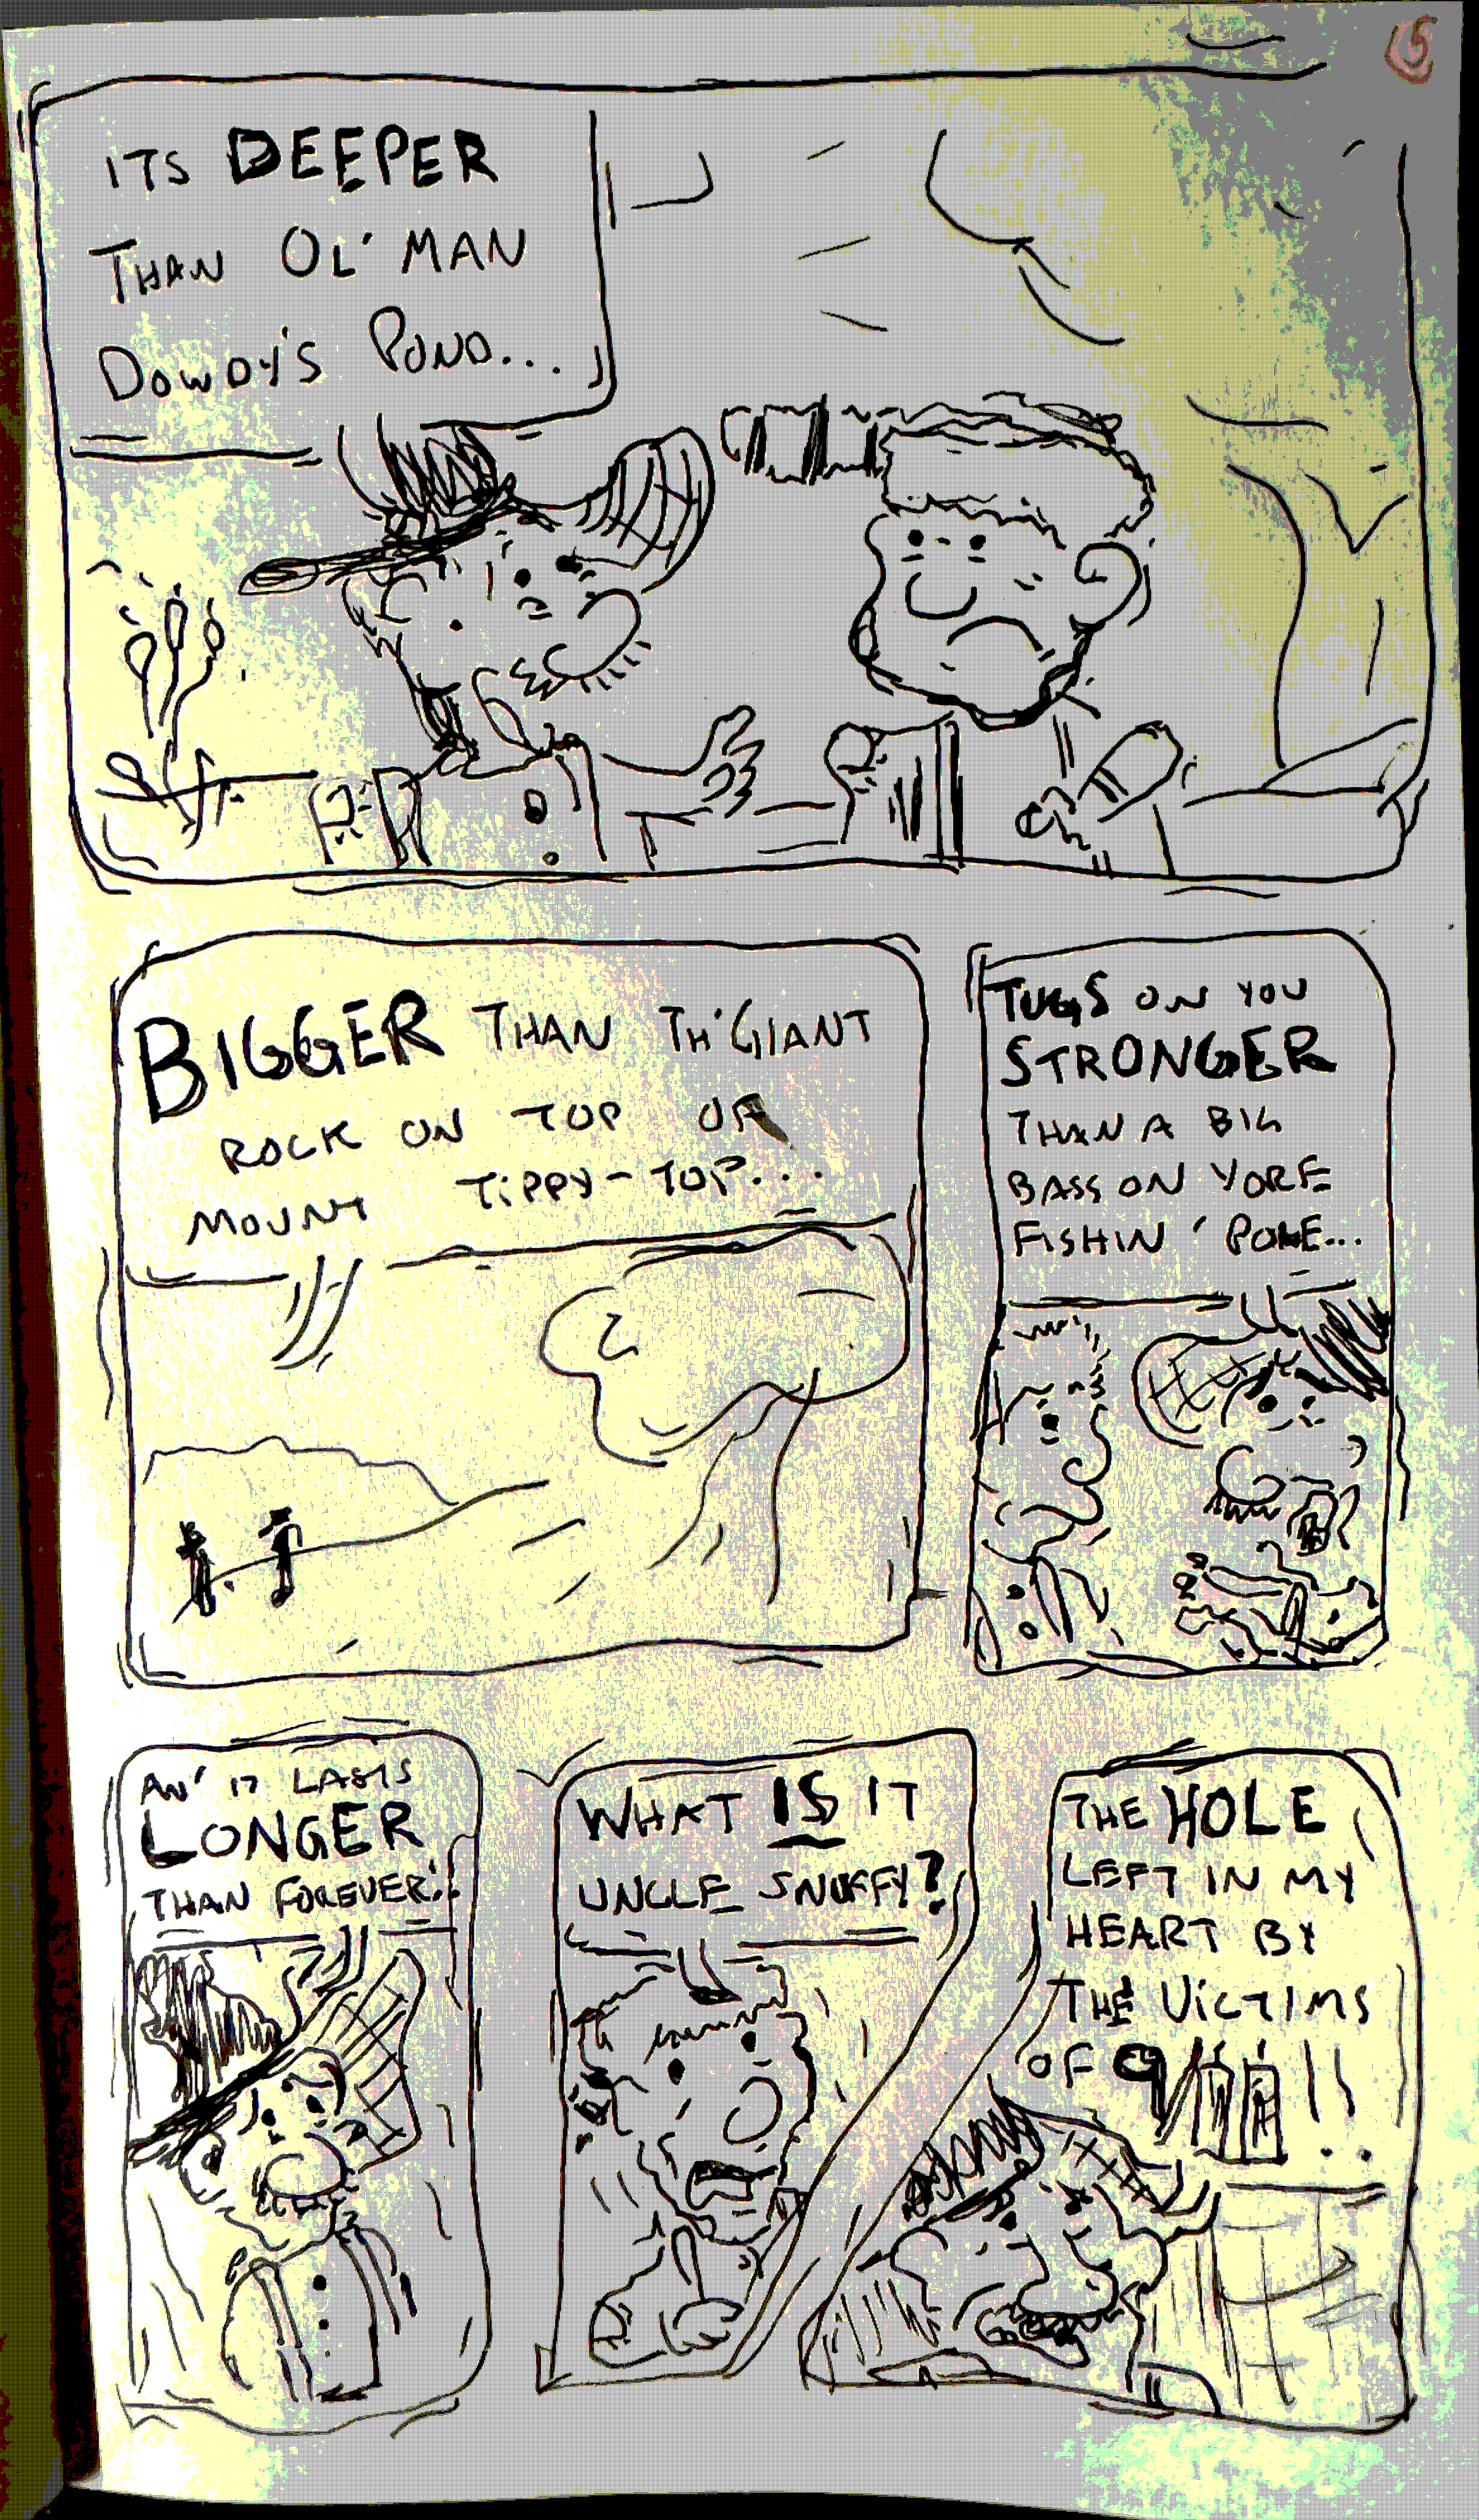 15
ITS DEEPER
THAN OL' MAN
DOWDY'S POND...
BIGGER THAN TH' GIANT
ROCK ON TOP OF
MOUNT TIPPY-TOP...
TUGS ON YOU
STRONGER
THAN A BIG
BASS ON YORE
FISHIN' POLE...
AN' IT LASTS
LONGER
THAN FOREVER!!
WHAT IS IT
UNCLE SNUFFY?
THE HOLE
LEFT IN MY
HEART BY
THE VICTIMS
OF 9/11!!